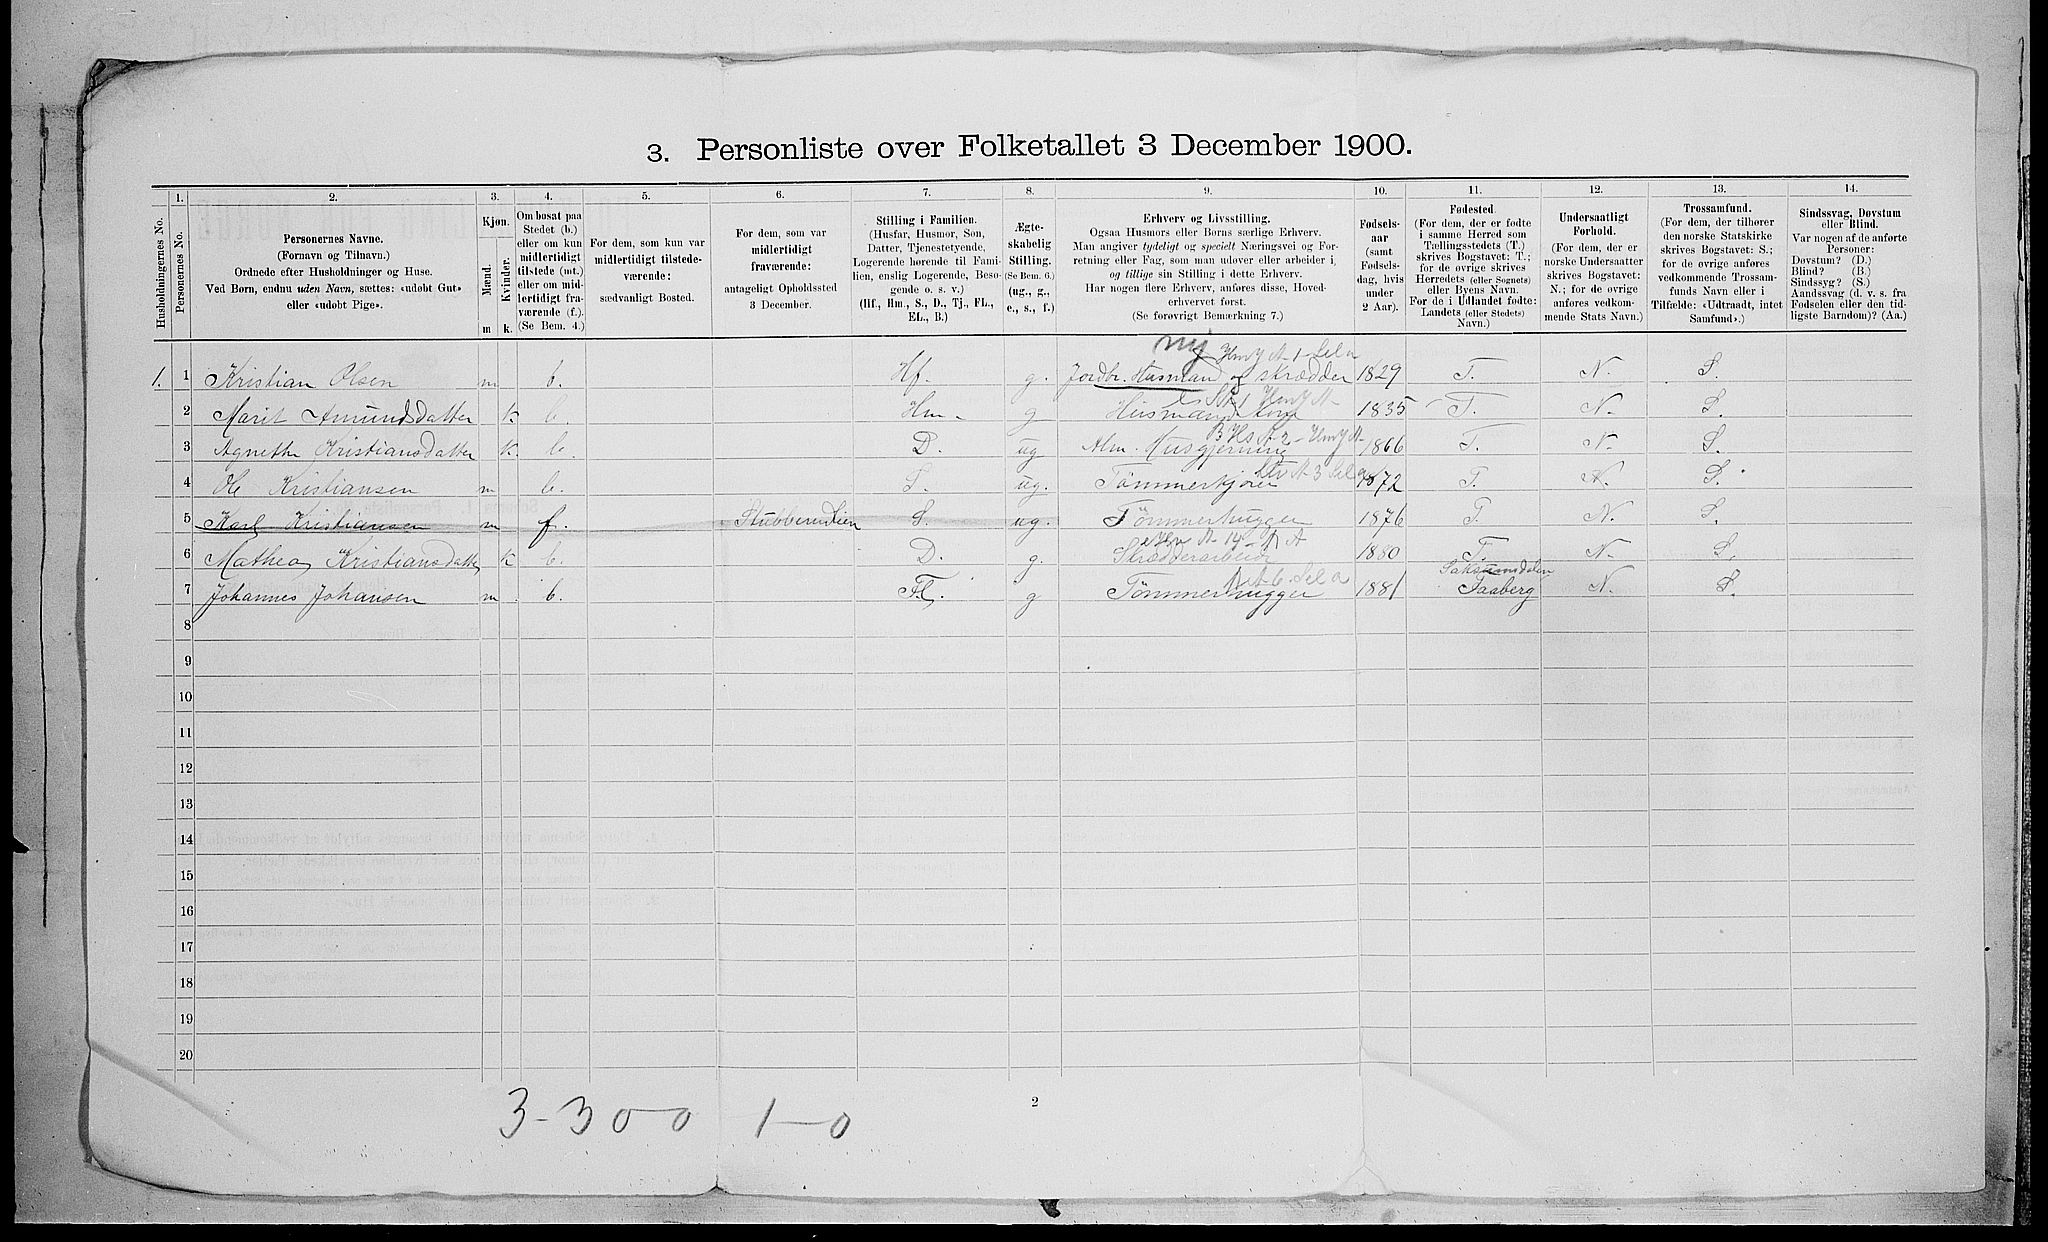 3. Personliste over Folketallet 3 December 1900.
1. 2. 3. 4. 5. 6. 7. 8. 9. 10. 11. 12. 13. 14.
Husholdningernes No.
Personernes No.
Personernes Navne.
(Fornavn og Tilnavn.)
Ordnede efter Husholdninger og Huse.
Ved Børn, endnu uden Navn, sættes: «udøbt Gut»
eller «udøbt Pige».
Kjøn.
Mænd.
Kvinder.
m k.
Om bosat paa
Stedet (b.)
eller om kun
midlertidigt
tilstede (mt.)
eller om mid-
lertidigt fra-
værende (f.).
(Se Bem. 4.)
For dem, som kun var
midlertidigt tilstede-
værende:
sædvanligt Bosted.
For dem, som var
midlertidigt
fraværende:
antageligt Opholdssted
3 December.
Stilling i Familien.
(Husfar, Husmor, Søn,
Datter, Tjenestetyende,
Logerende hørende til Fami-
lien, enslig Logerende, Besø-
gende o. s. v.)
(Hf., Hm., S., D., Tj., FL.,
EL., B.)
Ægte-
skabelig
Stilling.
(Se Bem. 6.)
(ug., g.,
e., s., f.)
Erhverv og Livsstilling.
Ogsaa Husmors eller Børns særlige Erhverv.
Man angiver tydeligt og specielt Næringsvei og For-
retning eller Fag, som man udøver eller arbeider i,
og tillige sin Stilling i dette Erhverv.
Har nogen flere Erhverv, anføres disse, Hoved-
erhvervet først.
(Se forøvrigt Bemærkning 7.)
Fødsels-
aar
(samt
Fødsels-
dag, hvis
under
2 Aar).
Fødested.
(For dem, der er fødte
i samme Herred som
Tællingsstedets (T.)
skrives Bogstavet: T.;
for de øvrige skrives
Herredets (eller Sognets)
eller Byens Navn.
For de i Udlandet fødte:
Landets (eller Stedets)
Navn.)
Undersaatligt
Forhold.
(For dem, der er
norske Undersaatter
skrives Bogstavet:
N.; for de øvrige
anføres vedkom-
mende Stats Navn.)
Trossamfund.
(For dem, der tilhører
den norske Statskirke
skrives Bogstavet: S.;
for de øvrige anføres
vedkommende Trossam-
funds Navn eller i
Tilfælde: «Udtraadt, intet
Samfund».)
Sindssvag, Døvstum
eller Blind.
Var nogen af de anførte
Personer:
Døvstum? (D.)
Blind? (B.)
Sindssyg? (S.)
Aandssvag (d. v. s. fra
Fødselen eller den tid-
ligste Barndom)? (Aa.)
1. 1 Kristian Olsen m b. Hf. g. Jordbr. Husmand og skrædder 1829 T. N. S.
2 Marit Amundsdatter k b. Hm. g Husmands kone 1835 T. N. S.
3 Agnethe Kristiansdatter k. b. D. ug Alm. Husgjerning 1866 T. N. S.
4 Ole Kristiansen m b. S. ug. Tømmerkjører 1872 T. N. S.
5 Karl Kristiansen m f. Stubberudlien S. ug. Tømmerhugger 1876 T. N. S.
6 Mathea Kristiansdatter k b. D. g. Skrædderarbeide 1880 T. N. S.
7 Johannes Johansen m b. FL. g Tømmerhugger 1881 Saksumdalen Faaberg N. S.
8
9
10
11
12
13
14
15
16
17
18
19
20
3-300 1-0
2